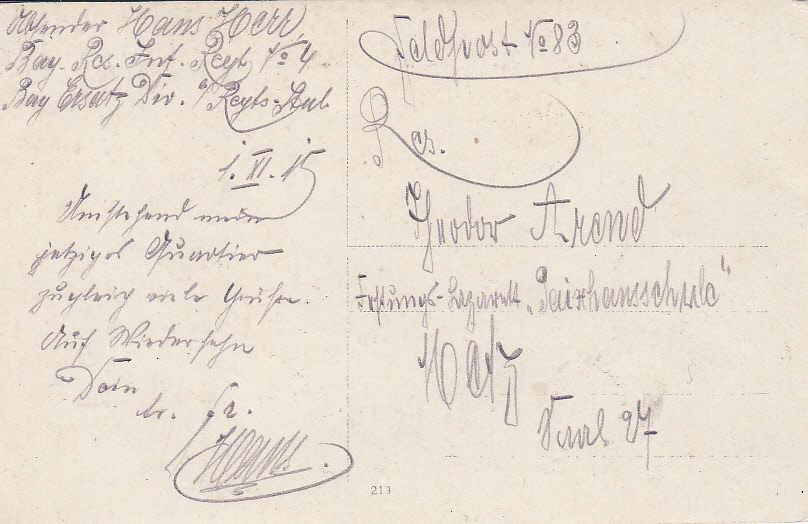 Absender Hans Herr,
Bay. Res. Inf. Regt. No 4
Bay Ersatz Div. Regts. Stab.
1. XI. 15
Umstehend mein
jetziges Quartier
zugleich viele Grüße.
Auf Wiedersehn
Dein
Hans.
Feldpost No 83
Res.
Theodor Arend
Festungs-Lazarett „Paixhansschule"
Metz
Saal 27
219